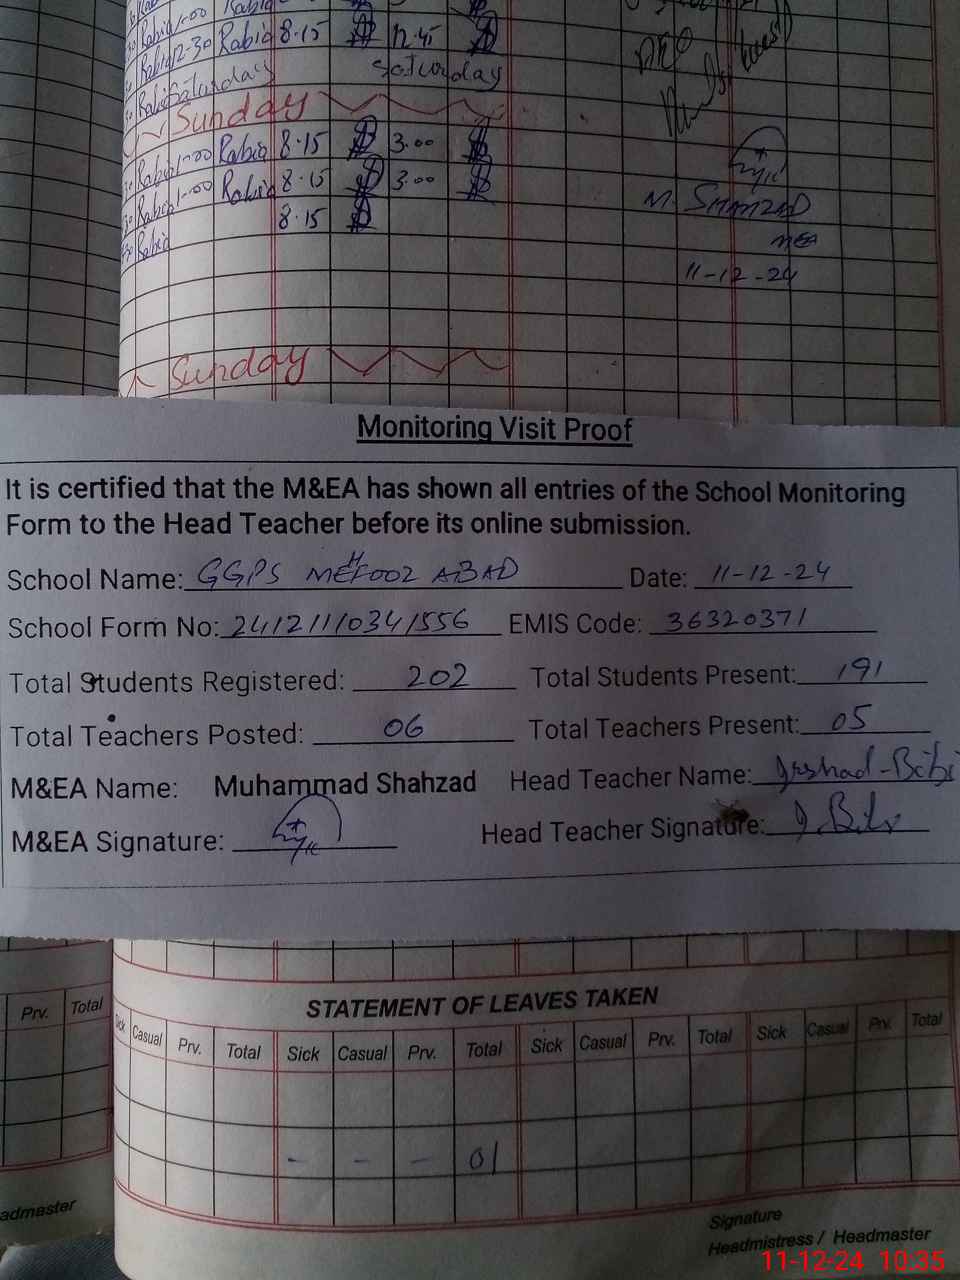 Rabia 1-00 Rabia
Rabia 12-30 Rabia 8.15 12.45
Rabia Saturday Saturday
Sunday
Rabia 1-00 Rabia 8.15 3.00
Rabia 1-00 Rabia 8.15 3.00
Rabia 8.15
M. SHAHZAD
MEA
11-12-24
Sunday
Monitoring Visit Proof
It is certified that the M&EA has shown all entries of the School Monitoring
Form to the Head Teacher before its online submission.
School Name: GGPS MEHFOOZ ABAD Date: 11-12-24
School Form No: 24121110341556 EMIS Code: 36320371
Total Students Registered: 202 Total Students Present: 191
Total Teachers Posted: 06 Total Teachers Present: 05
M&EA Name: Muhammad Shahzad Head Teacher Name: Irshad-Bibi
M&EA Signature: Head Teacher Signature: I.Bibi
STATEMENT OF LEAVES TAKEN
Prv. Total Sick Casual Prv. Total Sick Casual Prv. Total Sick Casual Prv. Total Sick Casual Prv. Total
- - - 01
admaster
Signature
Headmistress / Headmaster
11-12-24 10:35